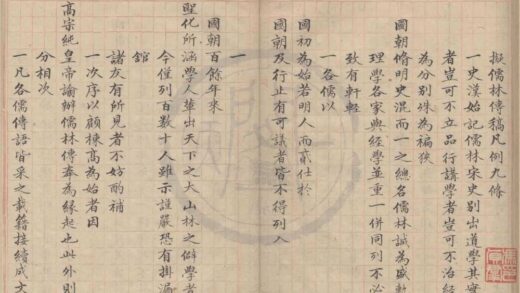 擬儒林傳稿凡例九條
一史漢始記儒林宋史別出道學其實
者豈可不立品行講學者豈可不治經
為分別殊為褊狹
國朝脩明史混而一之總名儒林誠為盛軌
理學各家與經學並重一併同列不必
致有軒輊
一各儒以
國初為始若明人而貳仕於
國朝及行止有可議者皆不得列入
國朝百餘年來
聖化所涵學人輩出天下之大山林之僻學者
今僅列百數十人雖示謹嚴恐有掛漏
館
諸友有所見者不妨酌補
一次序以顧棟高為始者因
高宗純皇帝諭辦儒林傳奉為緣起也此外則
分相次
一凡各儒傳語皆采之載籍接續成文